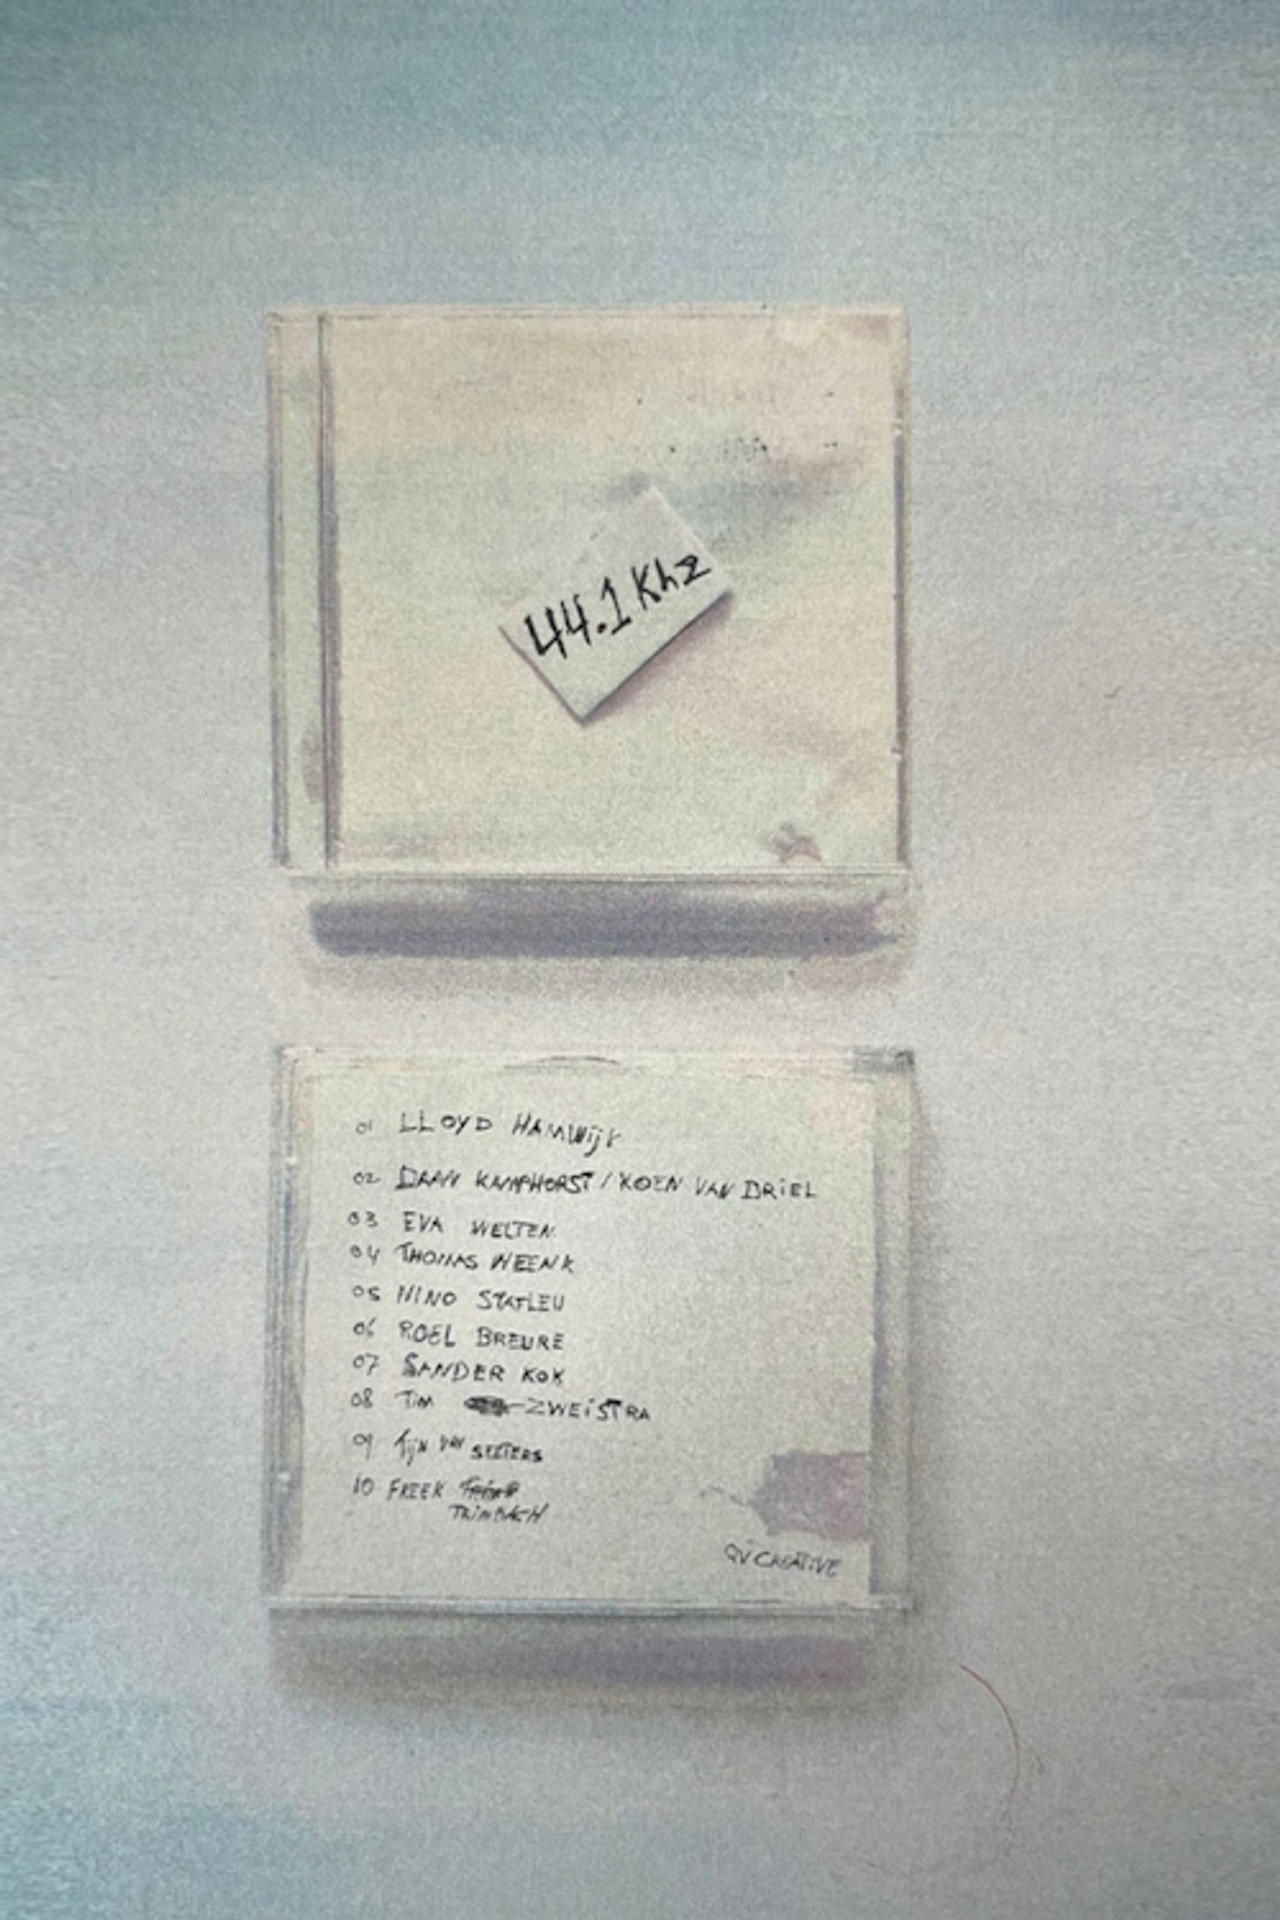 44.1 Khz
01 LLOYD HAMWijk
02 DAAN KAMPHORST / KOEN VAN DRIEL
03 EVA WELTEN
04 THOMAS WEENK
05 NINO STATLEU
06 ROEL BREURE
07 SANDER KOK
08 TiM ZWEiSTRA
09 Tijn VAN SEETERS
10 FREEK
TRiMBACH
QV CREATiVE